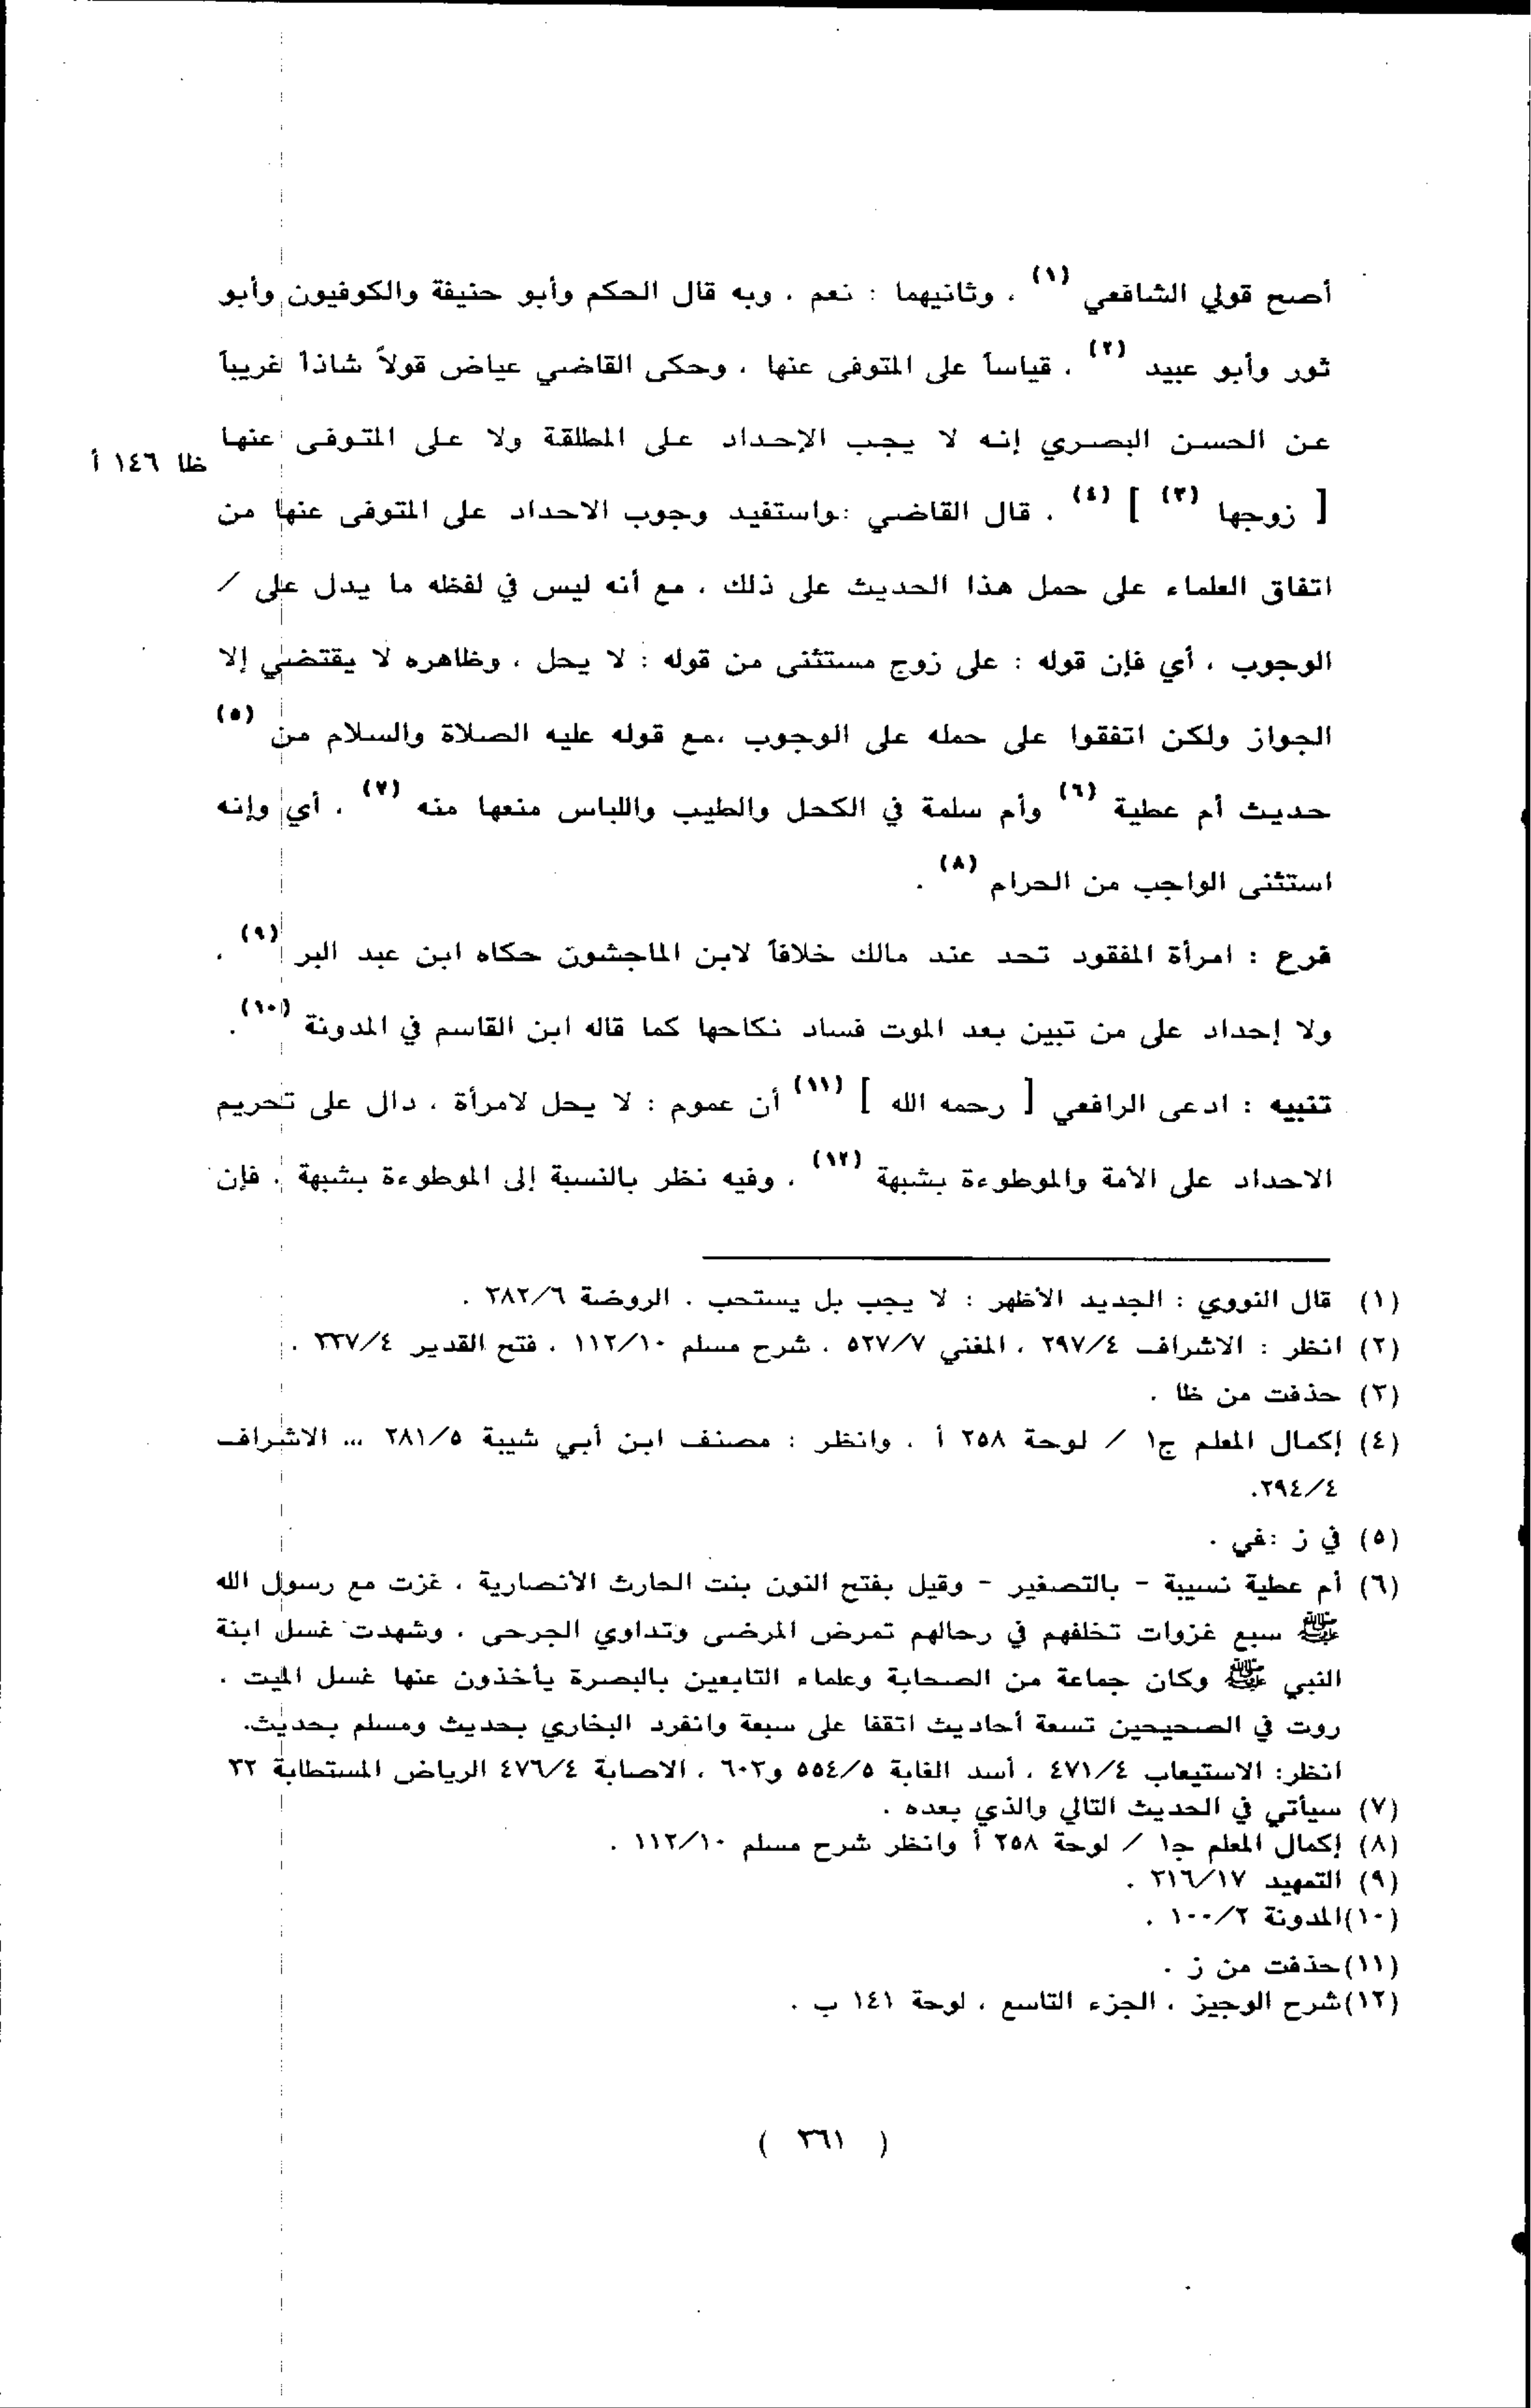 أصح قولي الشافعي (١) ، وثانيهما : نعم ، وبه قال الحكم وأبو حنيفة والكوفيون وأبو
ثور وأبو عبيد (٢) ، قياساً على المتوفى عنها ، وحكى القاضي عياض قولاً شاذاً غريباً
عن الحسن البصري إنه لا يجب الإحداد على المطلقة ولا على المتوفى عنها
ظا ١٤٦ أ
[ زوجها (٣) ] (٤) ، قال القاضي :واستفيد وجوب الاحداد على المتوفى عنها من
اتفاق العلماء على حمل هذا الحديث على ذلك ، مع أنه ليس في لفظه ما يدل على /
الوجوب ، أي فإن قوله : على زوج مستثنى من قوله : لا يحل ، وظاهره لا يقتضي إلا
الجواز ولكن اتفقوا على حمله على الوجوب ،مع قوله عليه الصلاة والسلام من (٥)
حديث أم عطية (٦) وأم سلمة في الكحل والطيب واللباس منعها منه (٧) ، أي وإنه
استثنى الواجب من الحرام (٨) .
فرع : امرأة المفقود تحد عند مالك خلافاً لابن الماجشون حكاه ابن عبد البر (٩) ،
ولا إحداد على من تبين بعد الموت فساد نكاحها كما قاله ابن القاسم في المدونة (١٠).
تنبيه : ادعى الرافعي [ رحمه الله ] (١١) أن عموم : لا يحل لامرأة ، دال على تحريم
الاحداد على الأمة والموطوءة بشبهة (١٢) ، وفيه نظر بالنسبة إلى الموطوءة بشبهة ، فإن
(١) قال النووي : الجديد الأظهر : لا يجب بل يستحب . الروضة ٣٨٢/٦ .
(٢) انظر : الاشراف ٢٩٧/٤ ، المغني ٥٢٧/٧ ، شرح مسلم ١١٢/١٠ ، فتح القدير ٣٣٧/٤ .
(٣) حذفت من ظا .
(٤) إكمال المعلم ج١ / لوحة ٢٥٨ أ ، وانظر : مصنف ابن أبي شيبة ٢٨١/٥ ... الاشراف
٢٩٤/٤.
(٥) في ز :في .
(٦) أم عطية نسيبة - بالتصغير - وقيل بفتح النون بنت الحارث الأنصارية ، غزت مع رسول الله
ﷺ سبع غزوات تخلفهم في رحالهم تمرض المرضى وتداوي الجرحى ، وشهدت غسل ابنة
النبي ﷺ وكان جماعة من الصحابة وعلماء التابعين بالبصرة يأخذون عنها غسل الميت .
روت في الصحيحين تسعة أحاديث اتفقا على سبعة وانفرد البخاري بحديث ومسلم بحديث.
انظر: الاستيعاب ٤٧١/٤ ، أسد الغابة ٥٥٤/٥ و٦٠٣ ، الاصابة ٤٧٦/٤ الرياض المستطابة ٣٢
(٧) سيأتي في الحديث التالي والذي بعده .
(٨) إكمال المعلم ج١ / لوحة ٢٥٨ أ وانظر شرح مسلم ١١٢/١٠ .
(٩) التمهيد ٣١٦/١٧ .
(١٠)المدونة ١٠٠/٢ .
(١١)حذفت من ز .
(١٢)شرح الوجيز ، الجزء التاسع ، لوحة ١٤١ ب .
( ٣٦١ )